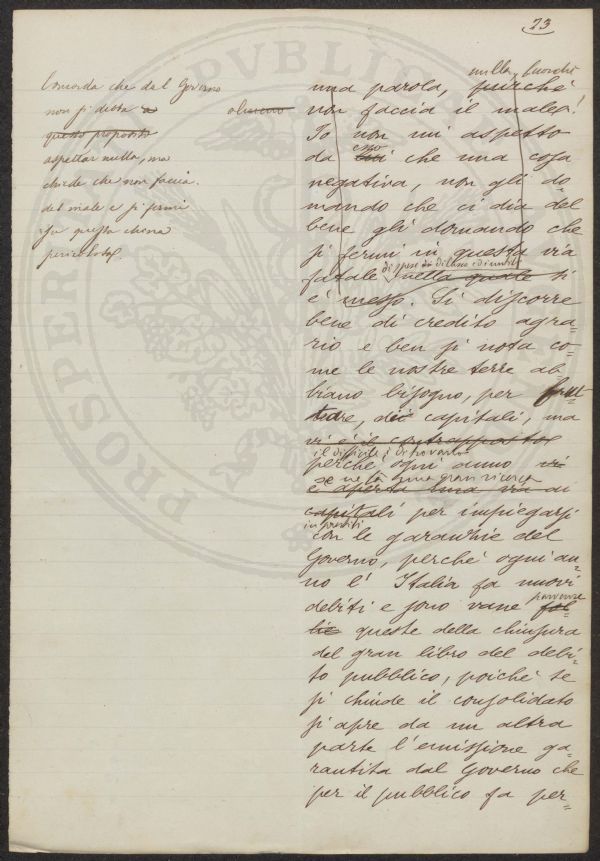 23
Concorda che dal Governo
non si debba
questo proposito
aspettar nulla, ma
chiede che non faccia
del male e si fermi
su questa china
pericolosa
nulla, fuorchè
una parola, purchè
non faccia il male!
Io non mi aspetto
esso
da lui che una cosa
negativa, non gli do=
mando che ci dia del
bene gli domando che
si fermi in questa via
di spese di
fatale nella quale si
è messo. Si discorre
bene di credito agra=
rio e ben si nota co=
me le nostre terre ab
biano bisogno, per frut
tare, di capitali, ma
vi è il contrapposto
il difficile è di trovarlo
perchè ogni anno vi
se ne fa una gran ricerca
è aperta una via ai
capitali per impiegarsi
in prestiti
con le garanzie del
Governo, perchè ogni an=
no l' Italia fa nuovi
debiti e sono vane fol=
parvenze
lie queste della chiusura
del gran libro del debi=
to pubblico, poichè se
si chiude il consolidato
si apre da un altra
parte l'emissione ga=
rantita dal Governo che
per il pubblico fa per=
PROSPERITAS PUBLICAE